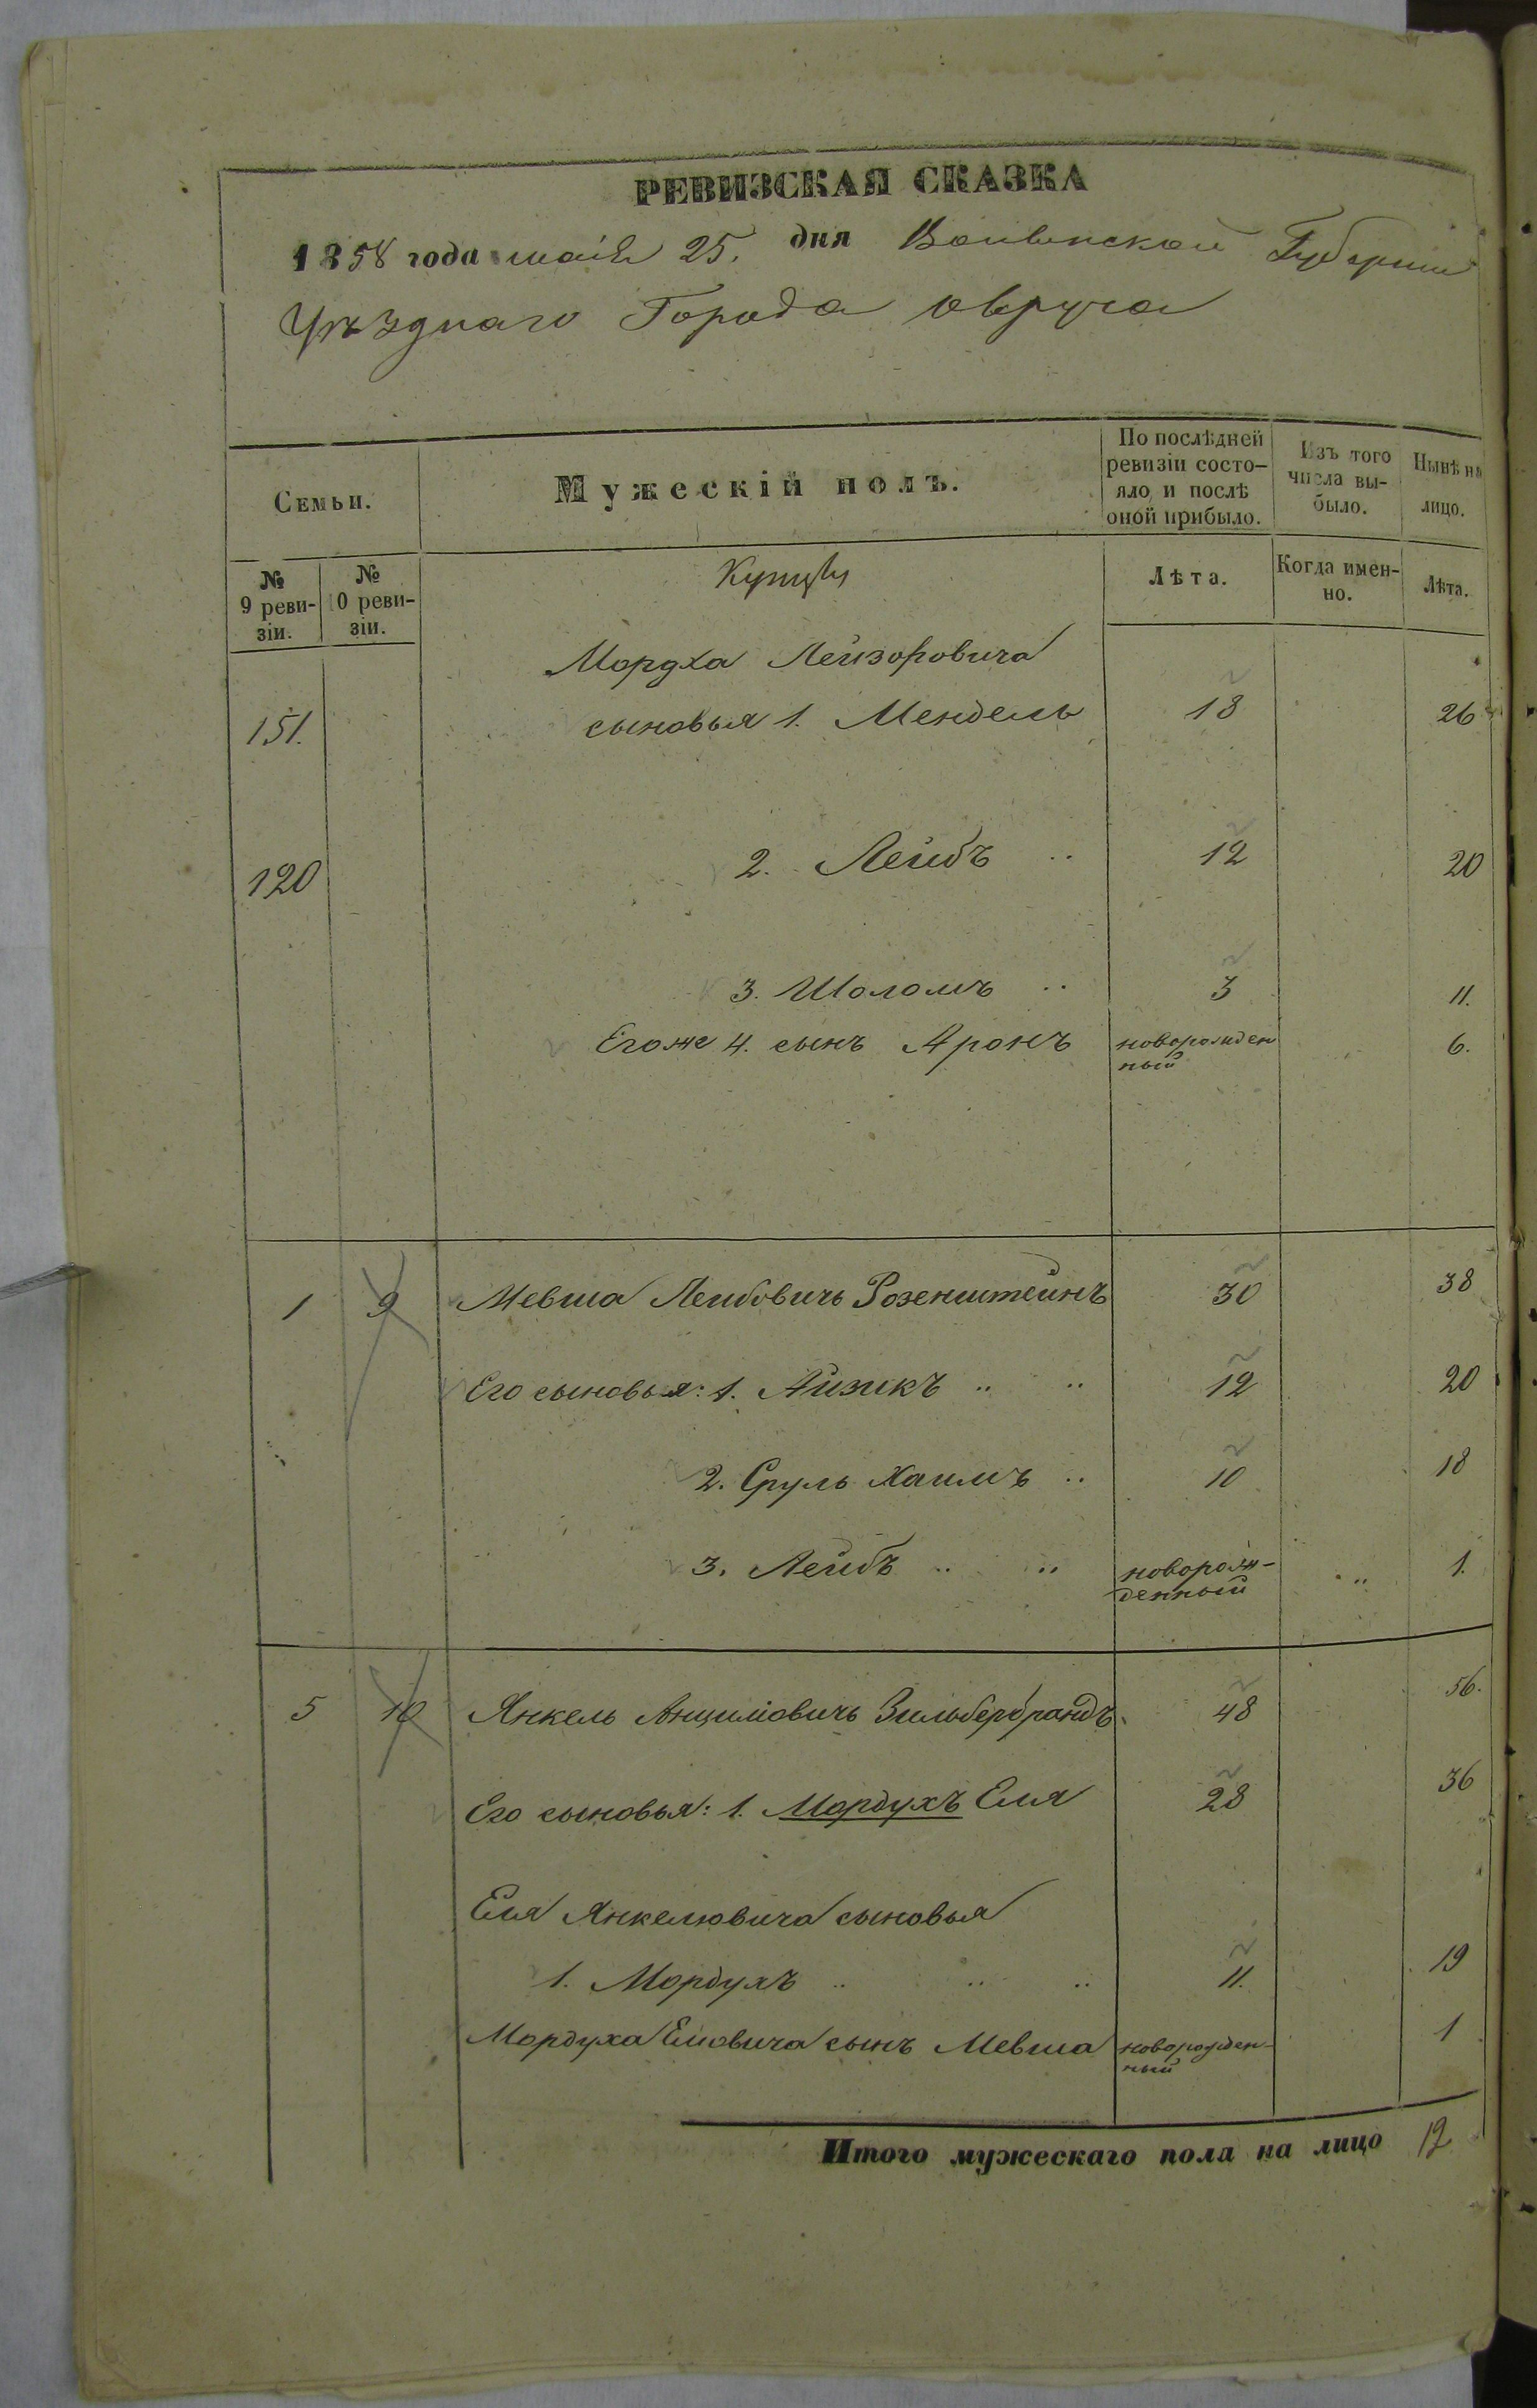 РЕВИЗСКАЯ СКАЗКА
1858 года маiя 25. дня Волынской Губернiи
Уѣзднаго Города Овруча
Семьи.
Мужескій полъ.
По послѣдней ревизіи состо-
яло, и послѣ оной прибыло.
Изъ того числа вы-
было.
Нынѣ на лицо.
№ 9 реви-
зіи.
№ 10 реви-
зіи.
Купцы
Лѣта.
Когда имен-
но.
Лѣта.
Мордха Лейзоровича
151. сыновья 1. Мендель 18 26
120 2. Лейбъ .. 12 20
3. Шоломъ .. 3 11.
Егоже 4. сынъ Аронъ новорожден 6.
ный
1 9 Мевша Лейбовичъ Розенштейнъ 30 38
Его сыновья: 1. Айзикъ .. .. 12 20
2. Сруль Хаимъ .. 10 18
3. Лейбъ .. .. новорож- .. 1.
денный
5 10 Янкель Анциловичъ Зильбербрандъ 48 56.
Его сыновья: 1. Мордухъ Еля 28 36
Еля Янкелювича сыновья
1. Мордухъ .. .. .. 11. 19
Мордуха Еліовича сынъ Мевша новорожден- 1
ный
Итого мужескаго пола на лицо 12